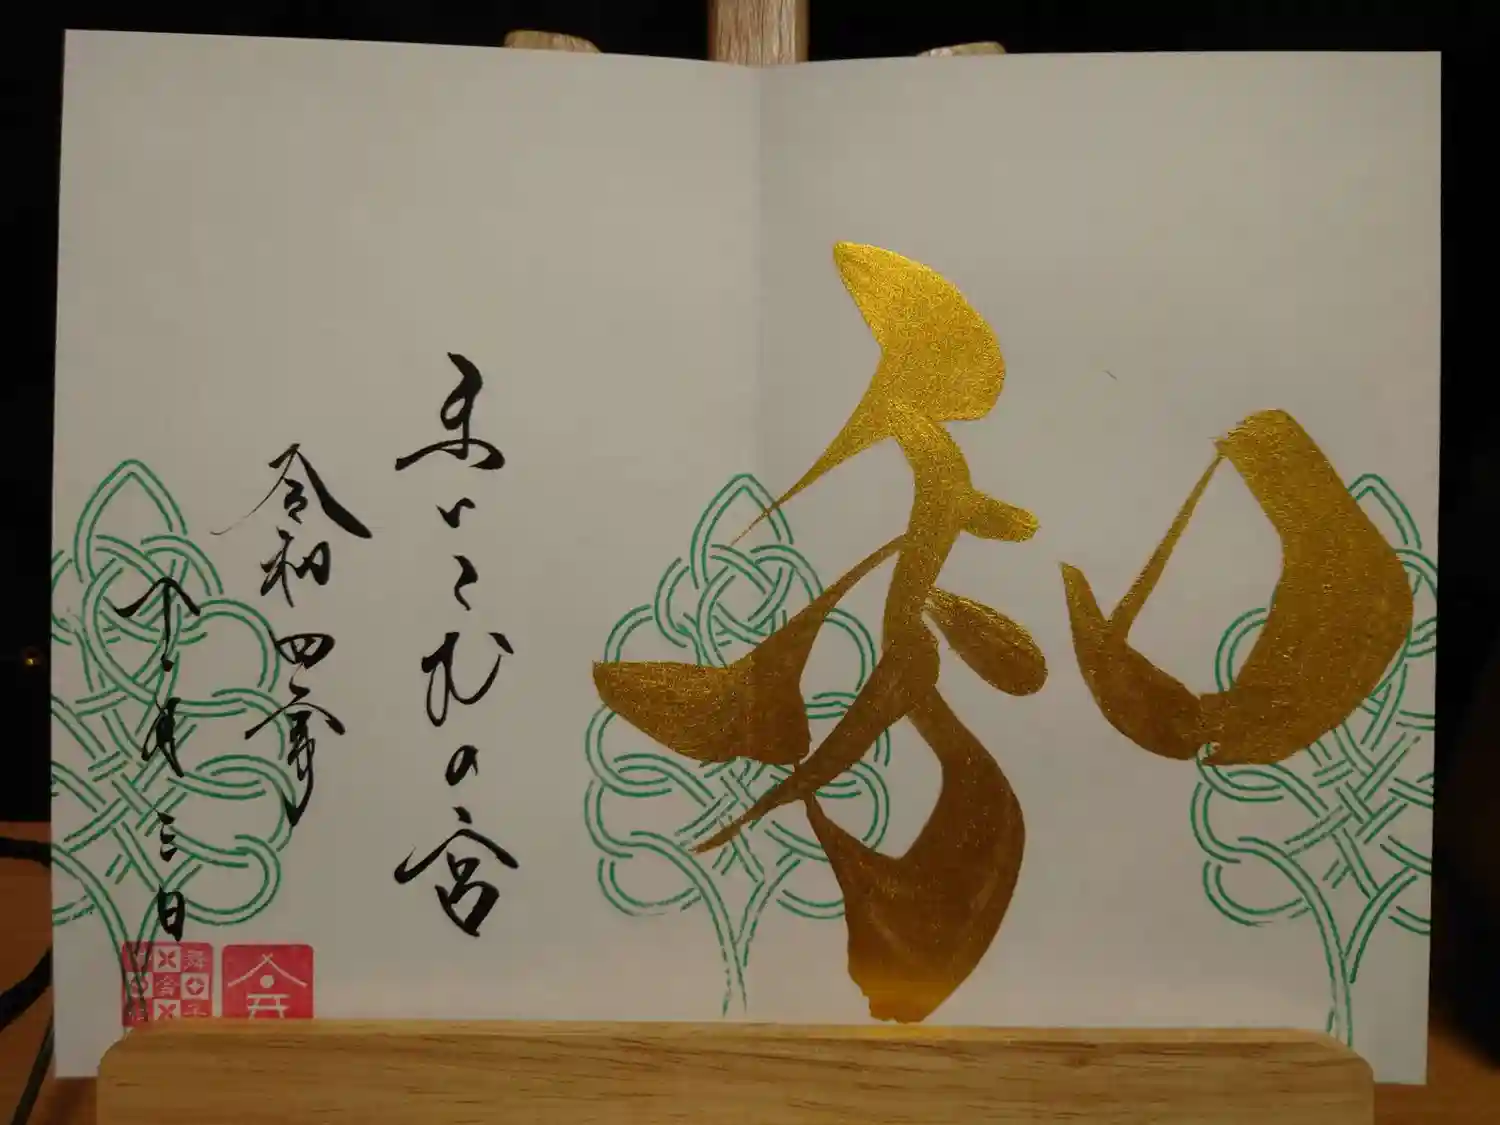 和
まいこむの宮
令和四年
十一月三日